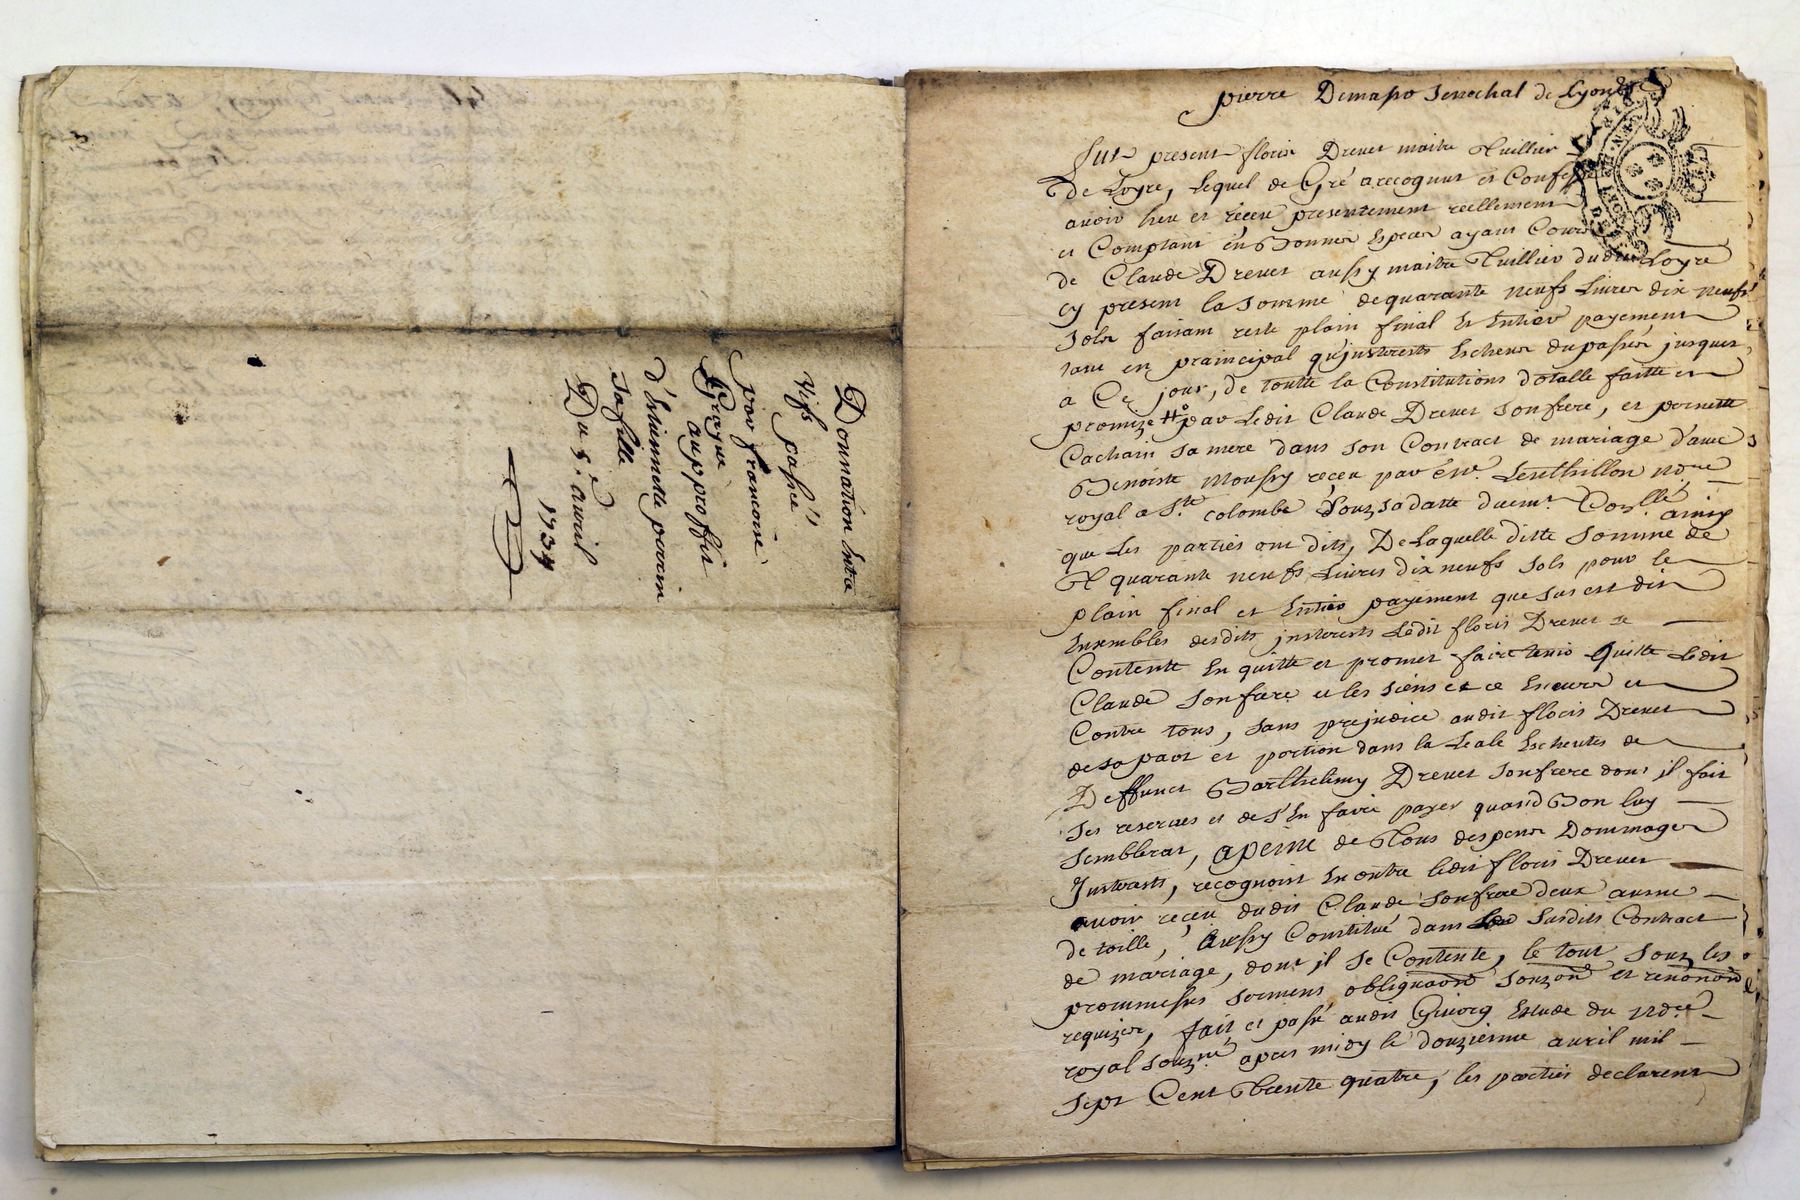 Donnation Entre
Vifs passée
par francoise
Grayue
au proffit
d'Estiennette perrin
sa fille
Du 5.e avvril
1734
pierre Demaso Senechal de Lyon
Fut present floris Drevet maitre Thuillier
De Loyre, Lequel de Gré a recognut et Confessé
avoir heu et receu presentement reellement
et Comptant en Bonnes Especes ayant Cours
de Claude Drevet aussy maitre Thuillier dudit Loyre
cy present la Somme de quarante neufs Livres dix neufs
Sols faisant reste plain final Et Entier payement
tant en praincipal qu'justerests Escheus du passés jusques
a Ce jour, de toutte la Constitutions dotalle faitte et
promize par Ledit Claude Drevet Son frere, et pernette
Cachain Sa mere dans Son Contract de mariage d'avec
Benoiste Moussy receu par Lenthillon
royal a S.te colombe Souz Sa datte ainsy
que Les parties ont dits, De Laquelle ditte Somme de
quarante neufs Livres dix neufs Sols pour le
plain final et Entier payement que Sus est dit
Ensembles desdits justerests Ledit floris Drevet se
Contente En quitte et promet faire tenir Quitte Ledit
Claude Son frere et les Siens et ce Envers et
Contre tous, Sans prejudice audit floris Drevet
de Sa part et portion dans la Leale Escheutes de
Deffunct Barthelemy Drevet Son frere dont il fait
Ses reserves et de S'En faire payer quand Bon luy
Semblerat, a peine de Tous despens Dommages
Justerests, recognoist En outre ledit floris Drevet
avoir receu dudit Claude Son frere deux ausne
de toille, aussy Constitué dans Susdits Contract
de mariage, dont jl Se Contente, le tout Souz les
prommesses Sermens obligaons Souzons et renonons
requizes, fait et passé audit Givorg Estude du
royal Souz.né apres midy le douzieme avril mil
Sept Cent Trente quatre, les parties declarent